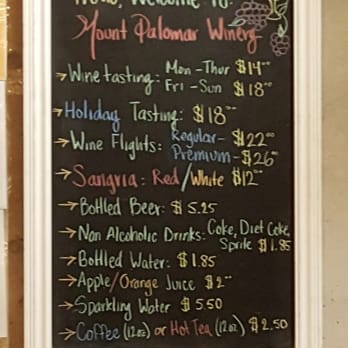 Welcome To:
Mount Palomar Winery
Wine tasting: Mon-Thur $14⁰⁰
Fri-Sun $18⁰⁰
Holiday Tasting: $18⁰⁰
Wine Flights: Regular- $22⁰⁰
Premium- $26⁰⁰
Sangria: Red/White $12⁰⁰
Bottled Beer: $5.25
Non Alcoholic Drinks: Coke, Diet Coke,
Sprite $1.85
Bottled Water: $1.85
Apple/Orange Juice $2⁰⁰
Sparkling Water $5.50
Coffee (12oz) or Hot Tea (12oz) $2.50